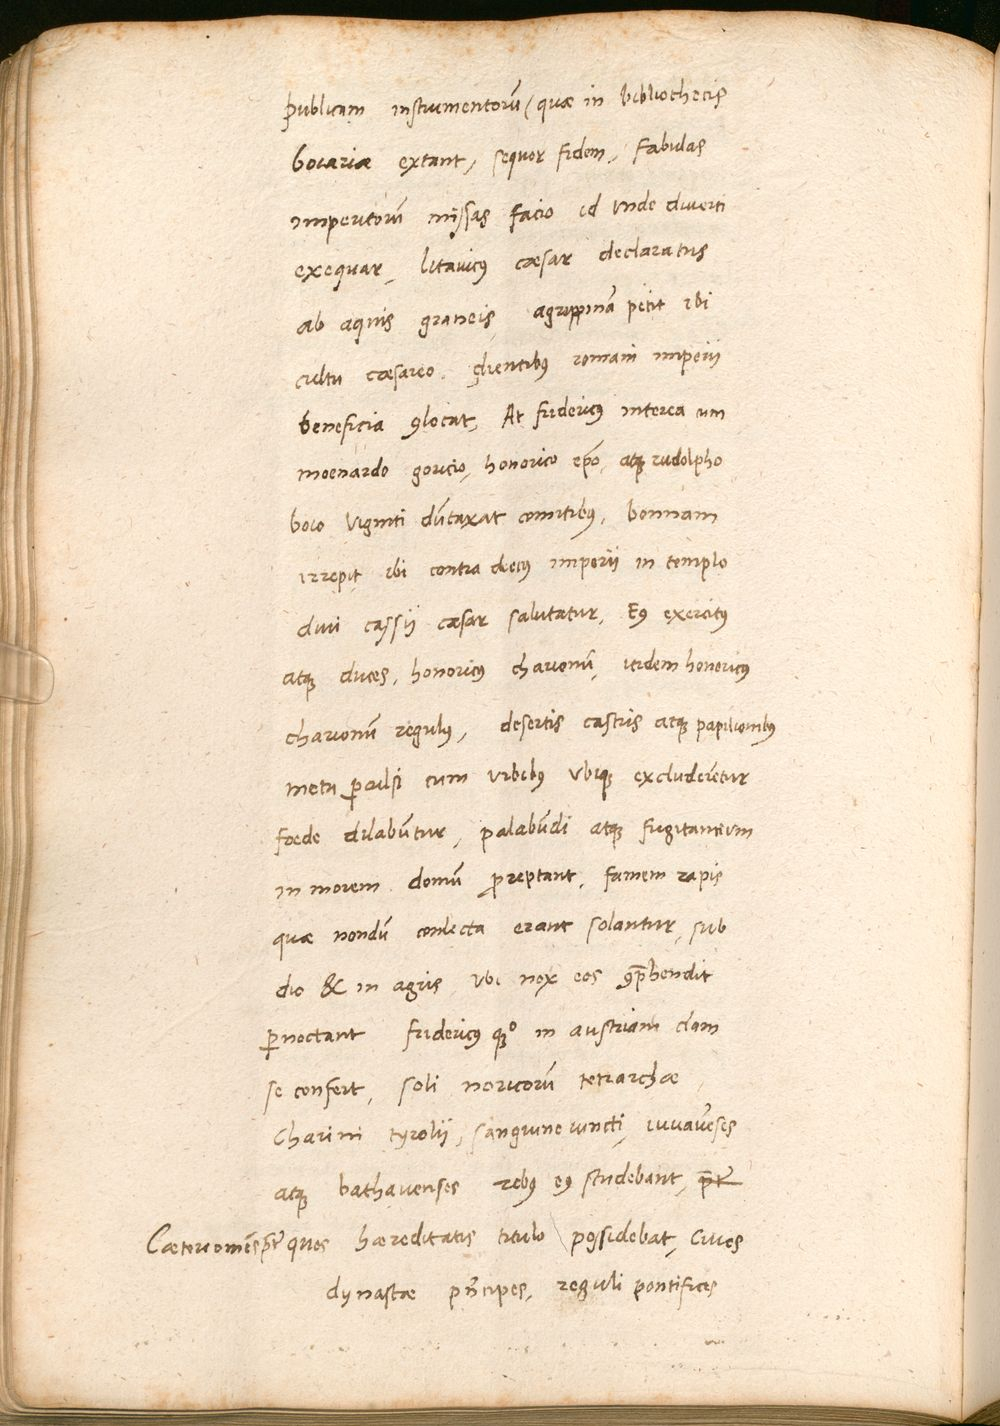 publicam instrumentorū (quæ in bibliothecis
boiariæ extant, sequor fidem, Fabulas
imperitorū missas facio id unde diverti
exequar, litavicꝰ cæsar declaratus
ab aquis graneis, agrippinā petit ibi
cultu cæsareo. clientibꝰ romani imperii
beneficia ꝯlocat, At fridericꝰ interea cum
moenardo goricio, honorico ep̄o, atqꝫ rudolpho
boio viginti dūtaxat comitibꝰ, bonnam
irrepit ibi contra decꝰ imperii in templo
divi cassii cæsar salutatur, Eꝰ exercitꝰ
atqꝫ duces, honoricꝰ charionū, itidem honoricꝰ
charionū regulꝰ, desertis castris atqꝫ papilionibꝰ
metu ꝑculsi cum urbibꝰ ubiqꝫ excluderētur
foede dilabūtur, palabūdi atqꝫ fugitantium
in morem domū ꝓreptant, famem rapis
quæ nondū conlecta erant solantur, sub
dio & in agris ubi nox eos ꝯp̄hendit
ꝑnoctant fridericꝰ qꝫº in austriam clam
se confert, soli noricorū tetrarchæ
Charini tyrolii, sanguine iuncti, iuvavēses
atqꝫ bathavenses rebꝰ eꝰ studebant, p̄t
Cæteri omēs p̄t quos hæreditatis titulo possidebat, Cives
dynastæ pn̄cipes, reguli pontifices